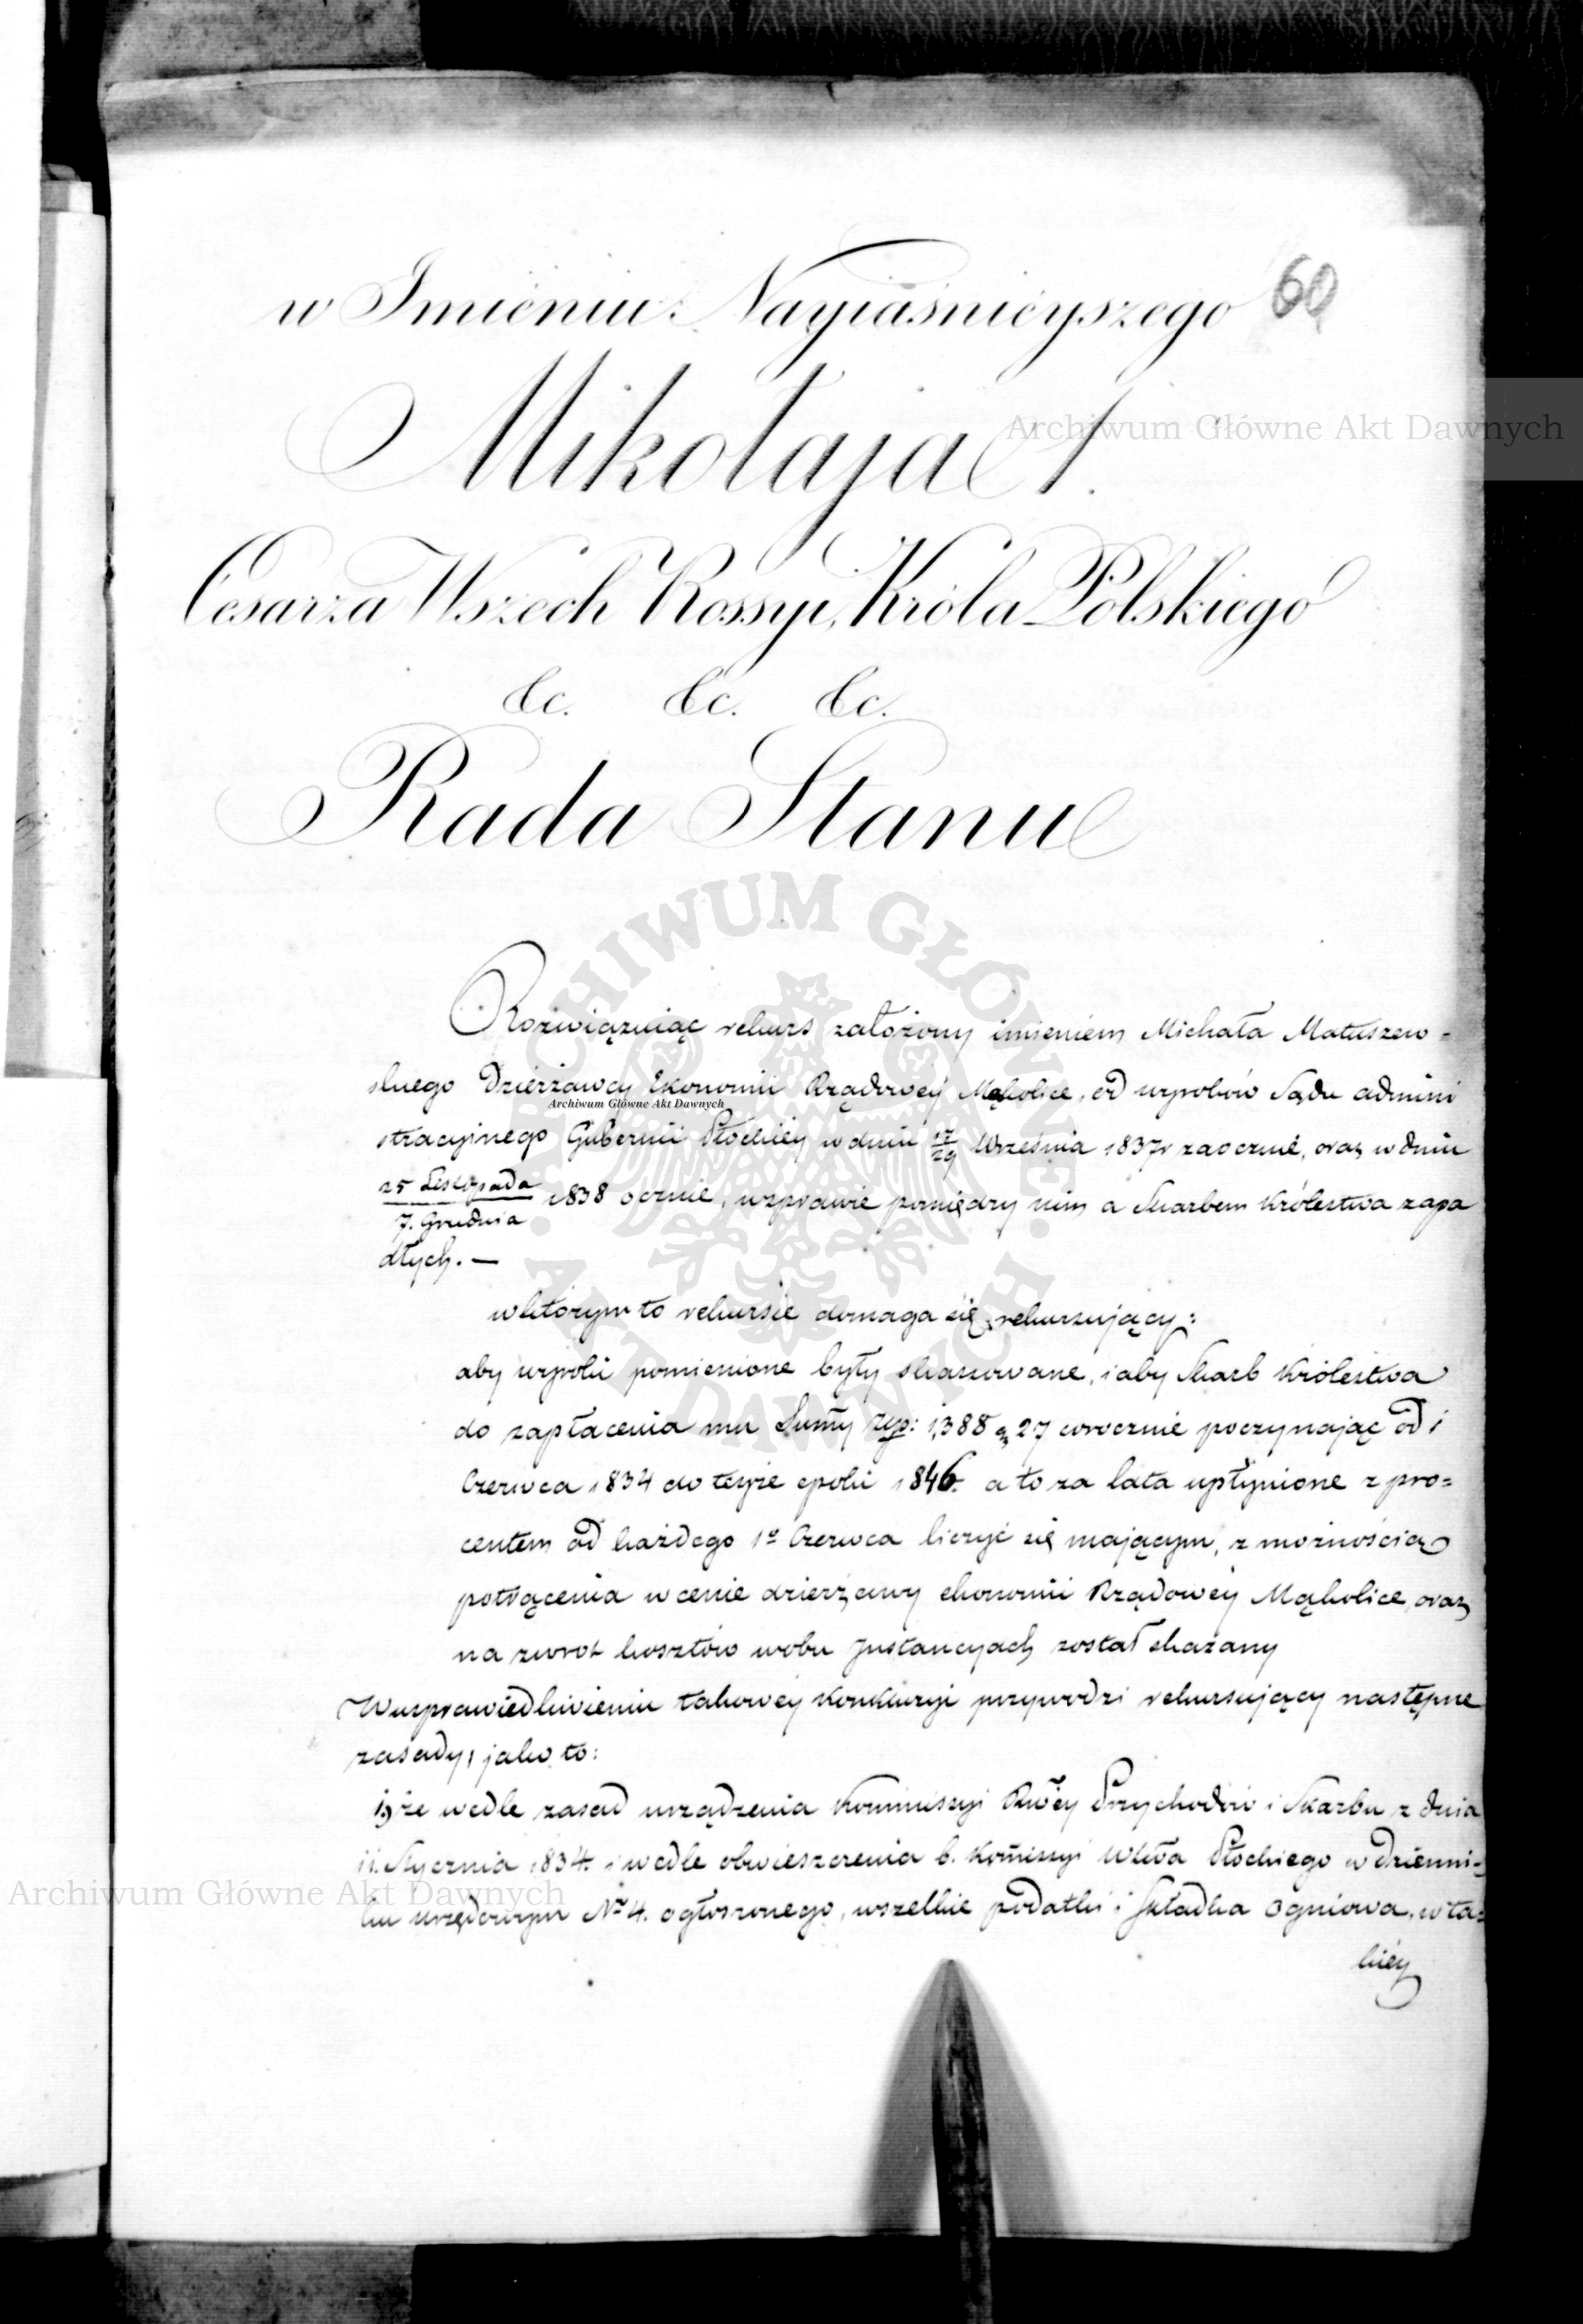 60
w Imieniu Nayiaśnieyszego
Mikołaja I.
Cesarza Wszech Rossyi, Króla Polskiego
&c. &c. &c.
Rada Stanu
Rozwiązuiąc rekurs założony imieniem Michała Matuszew-
skiego Dzierżawcy Ekonomii Rządowéy Mąkolice, od wyroków Sądu admini
stracyjnego Gubernii Płockiéy w dniu 17/29 Września 1837r zaocznie, oraz w dniu
25 Listopada/7. Grudnia 1838 ocznie, w sprawie pomiędzy nim a Skarbem Królestwa zapa
dłych. —
w którym to rekursie domaga się rekursujący:
aby wyroki pomienione były skassowane, i aby Skarb Królestwa
do zapłacenia mu Summy Złp: 1,388 g 27 corocznie poczynając od 1
Czerwca 1834 do tejże epoki 1846. a to za lata upłynione z pro=
centem od każdego 1o Czerwca liczyć się mającym, z możnością
potrącenia w cenie dzierżawy ekonomii Rządowéy Mąkolice, oraz
na zwrot kosztów w obu Instancyach został skazany
W usprawiedliwieniu takowéy konkluzyi przywodzi rekursujący następne
zasady, jako to:
1) że wedle zasad urządzenia Kommissyi Rwéy Przychodów i Skarbu z dnia
11. Stycznia 1834. i wedle obwieszczenia b. Kommissyi Wdztwa Płockiego w Dzienni-
ku urzędowym No 4. ogłoszonego, wszelkie podatki i Składka Ogniowa, w ta=
kiéy
Archiwum Główne Akt Dawnych
Archiwum Główne Akt Dawnych
Archiwum Główne Akt Dawnych
ARCHIWUM GŁÓWNE AKT DAWNYCH